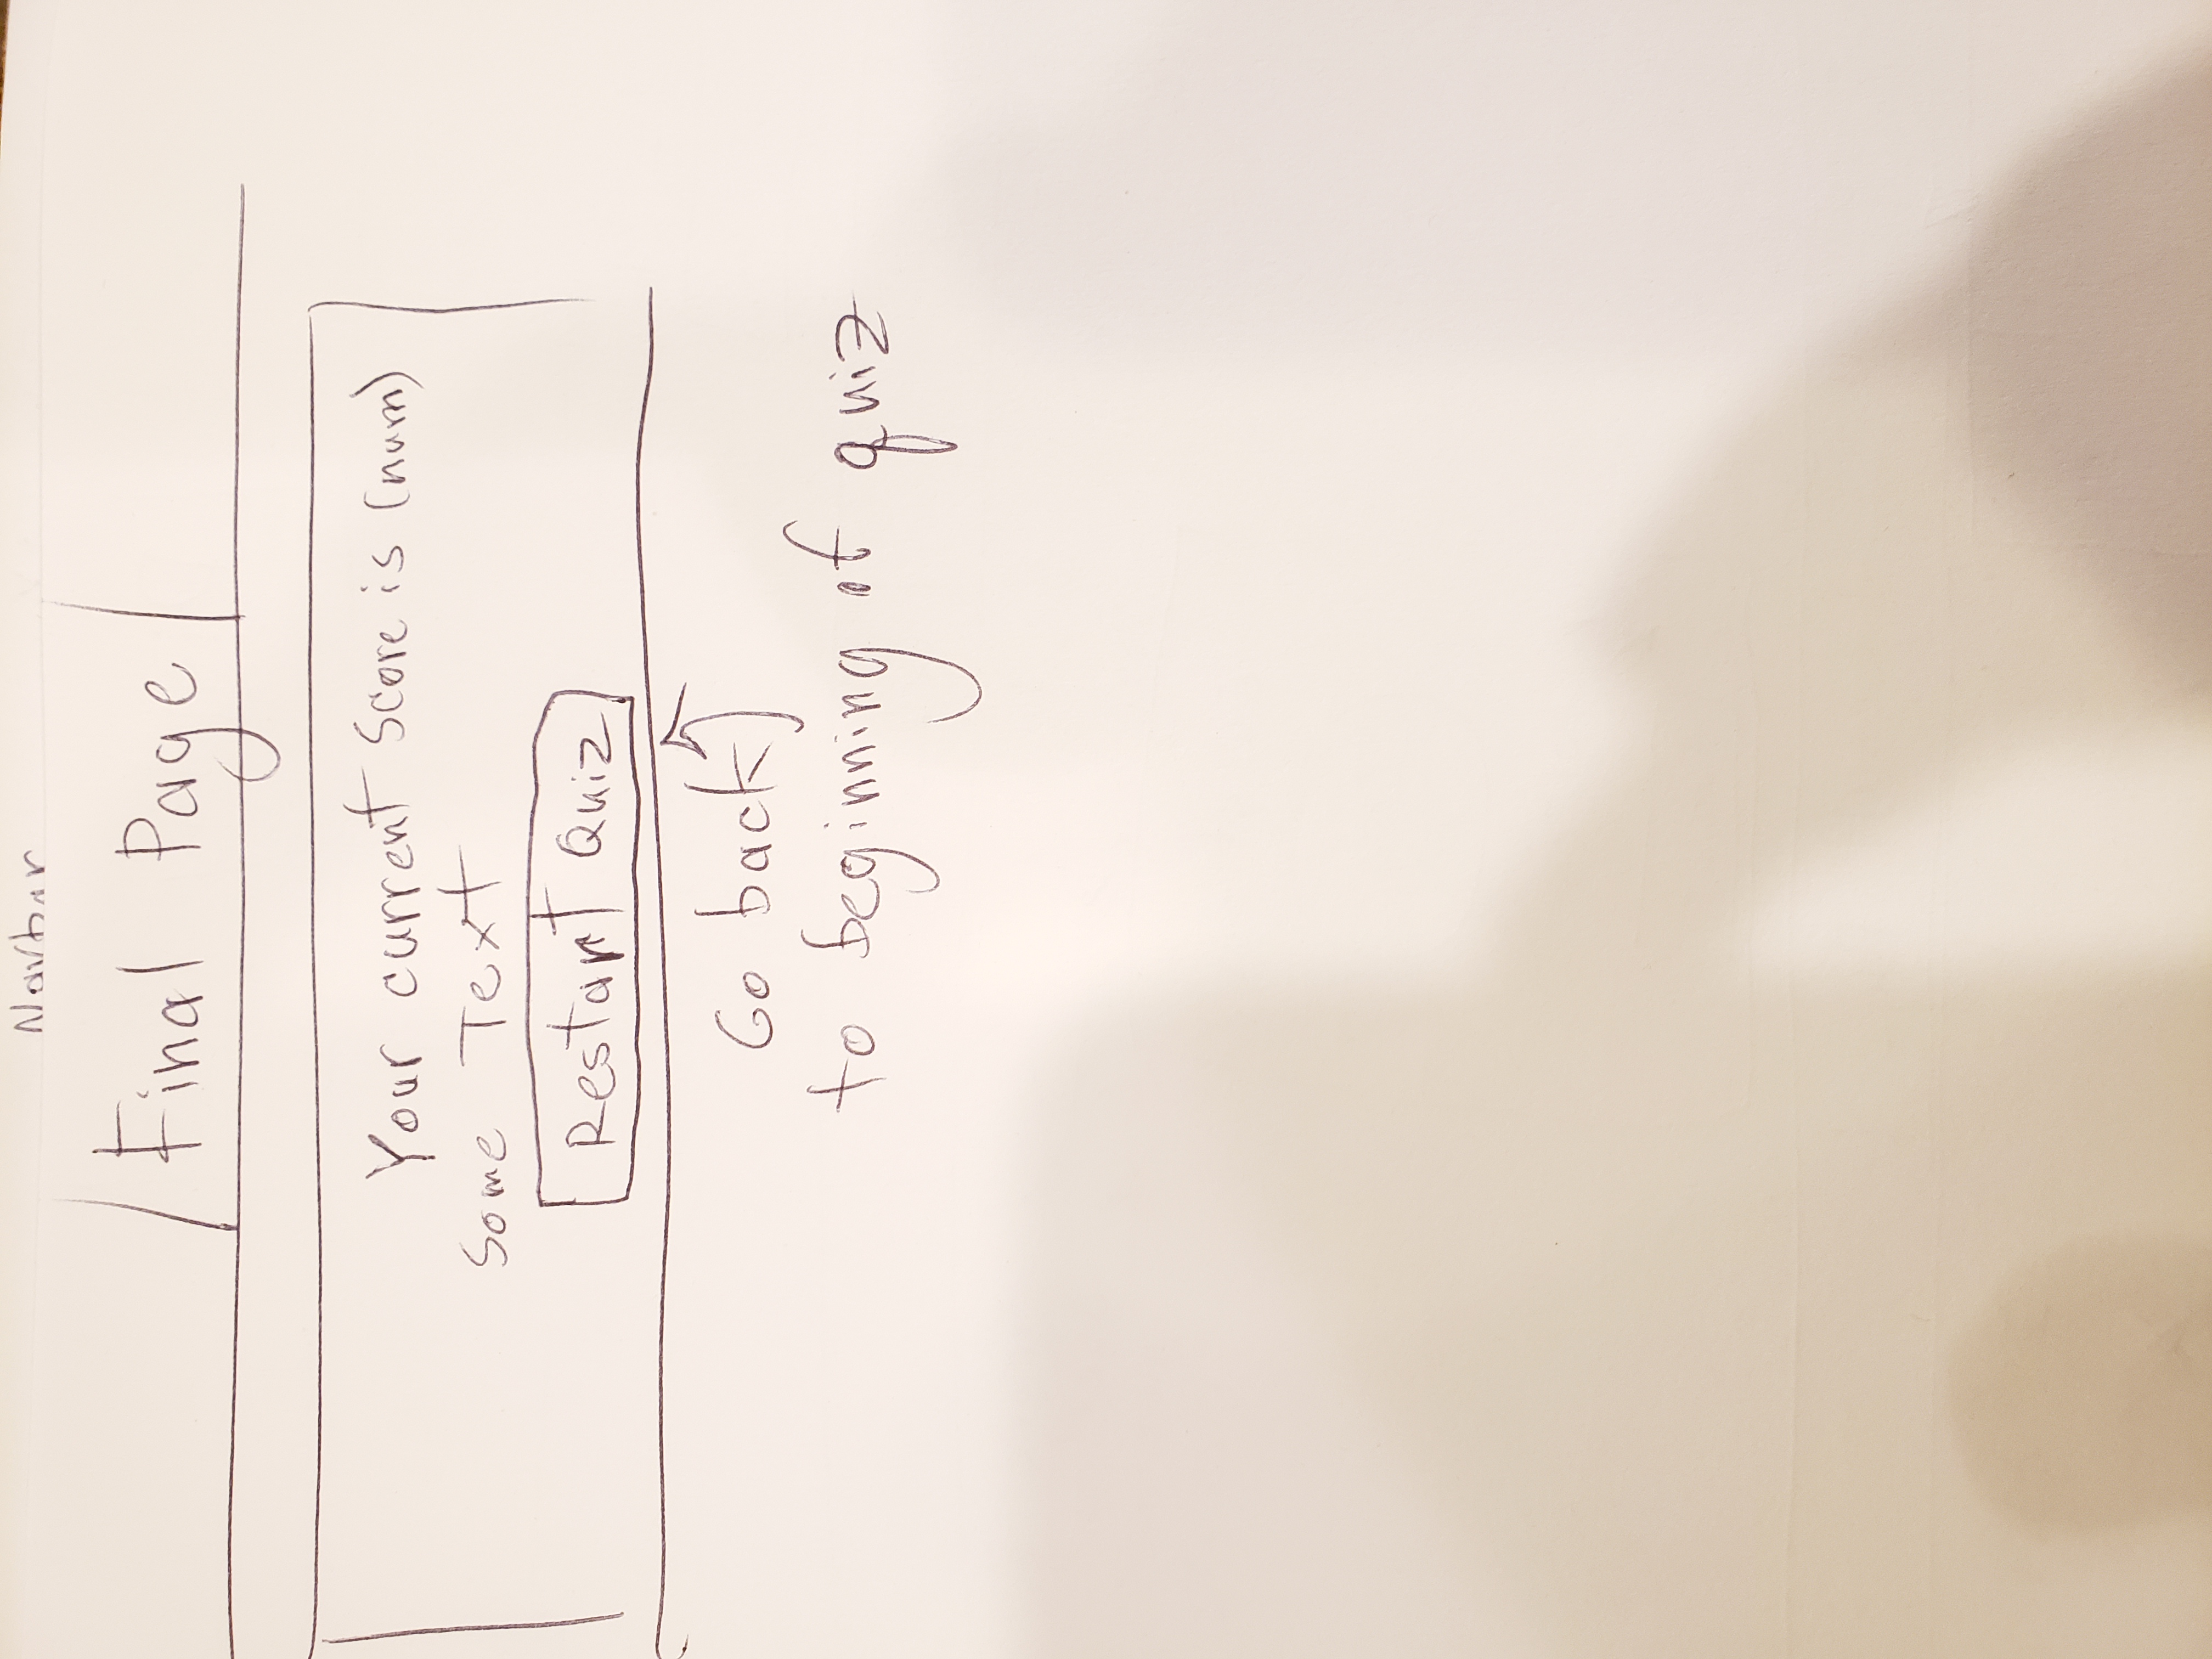 Navbar
Final Page
Your current Score is (num)
Some Text
Restart Quiz
Go back
to beginning of quiz